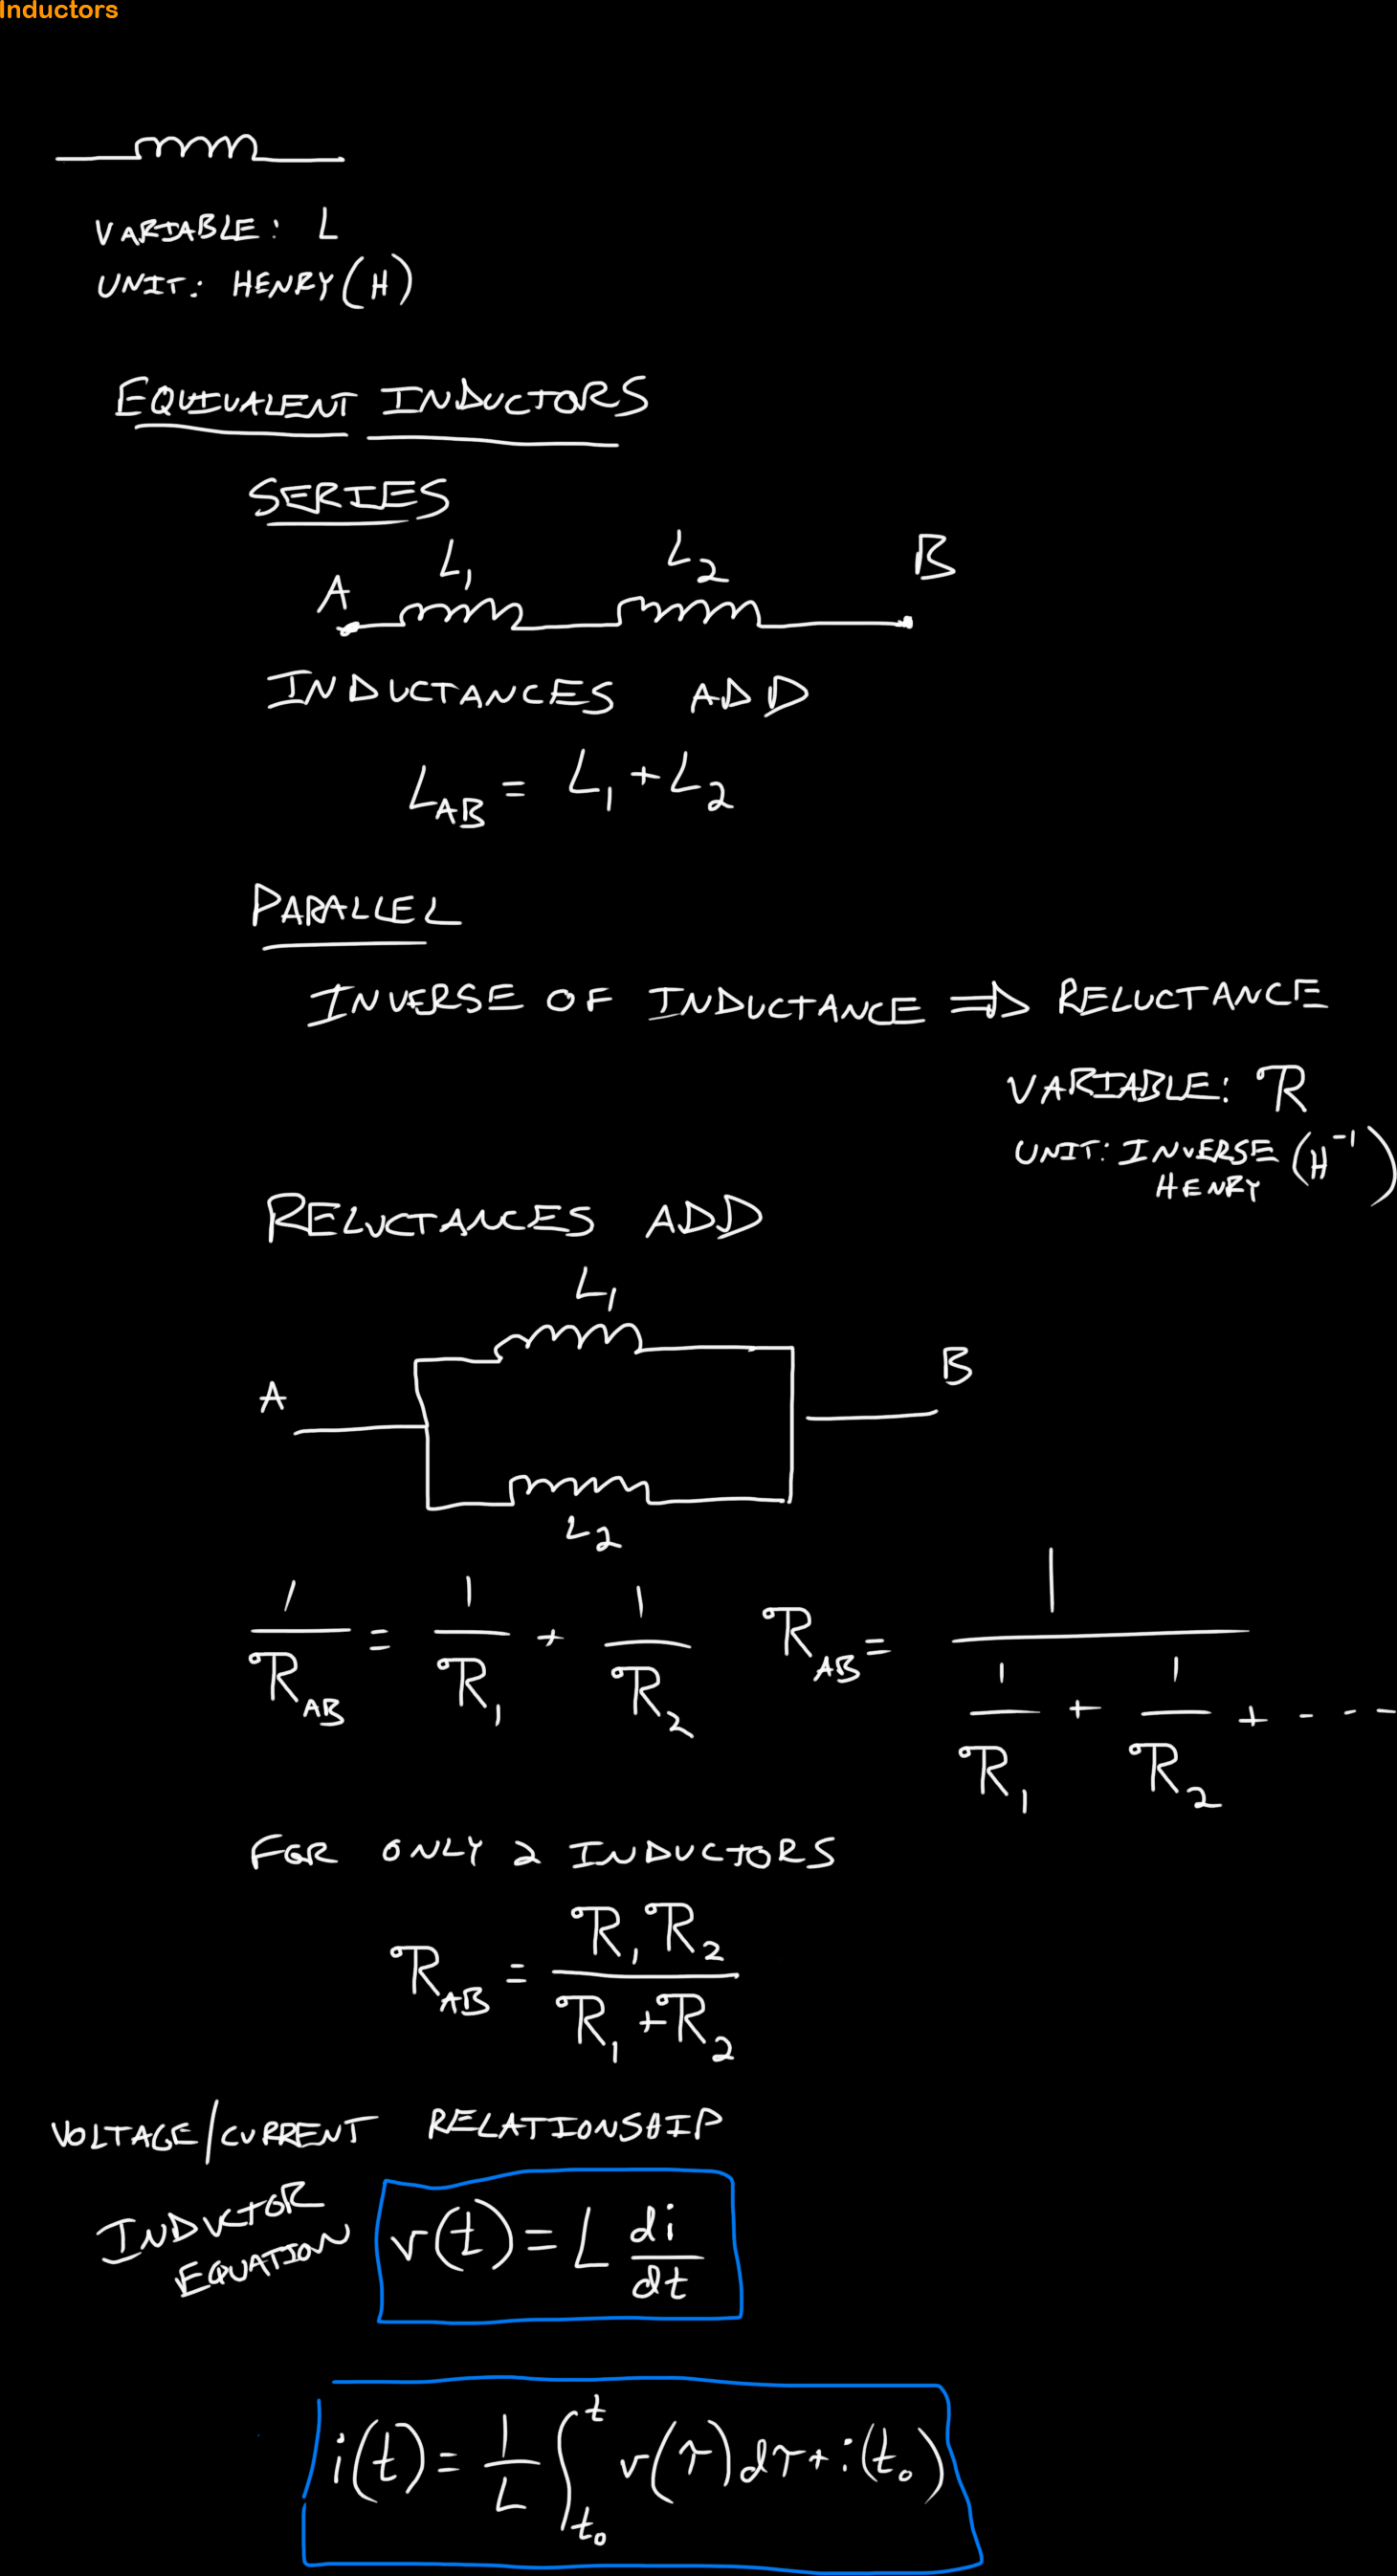 Inductors
VARIABLE: L
UNIT: HENRY (H)
EQUIVALENT INDUCTORS
SERIES
A L₁ L₂ B
INDUCTANCES ADD
L_AB = L₁ + L₂
PARALLEL
INVERSE OF INDUCTANCE ⇒ RELUCTANCE
VARIABLE: ℛ
UNIT: INVERSE HENRY (H⁻¹)
RELUCTANCES ADD
L₁
A B
L₂
1/ℛ_AB = 1/ℛ₁ + 1/ℛ₂ ℛ_AB = 1/(1/ℛ₁ + 1/ℛ₂ + ----)
FOR ONLY 2 INDUCTORS
ℛ_AB = ℛ₁ℛ₂/(ℛ₁ + ℛ₂)
VOLTAGE/CURRENT RELATIONSHIP
INDUCTOR EQUATION v(t) = L di/dt
i(t) = 1/L ∫_{t₀}^{t} v(τ)dτ + i(t₀)